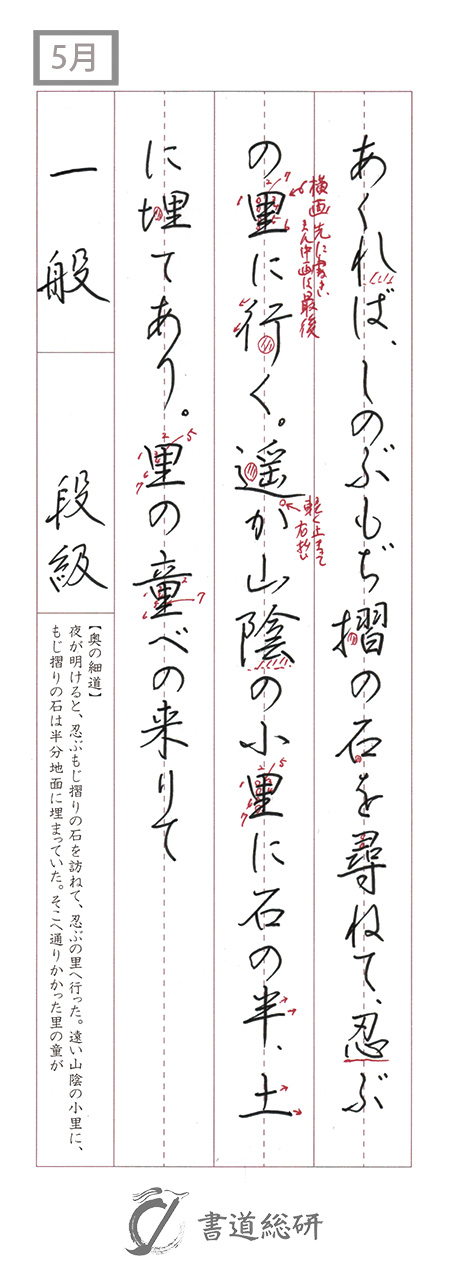 5月
あくれば、しのぶもぢ摺の石を尋ねて、忍ぶ
の里に行く。遥か山陰の小里に石の半、土
に埋てあり。里の童べの来りて
横画先に書き、
まん中画は最後
軽く止まって
右払い
一般 段級
【奥の細道】
夜が明けると、忍ぶもじ摺りの石を訪ねて、忍ぶの里へ行った。遠い山陰の小里に、
もじ摺りの石は半分地面に埋まっていた。そこへ通りかかった里の童が
書道総研